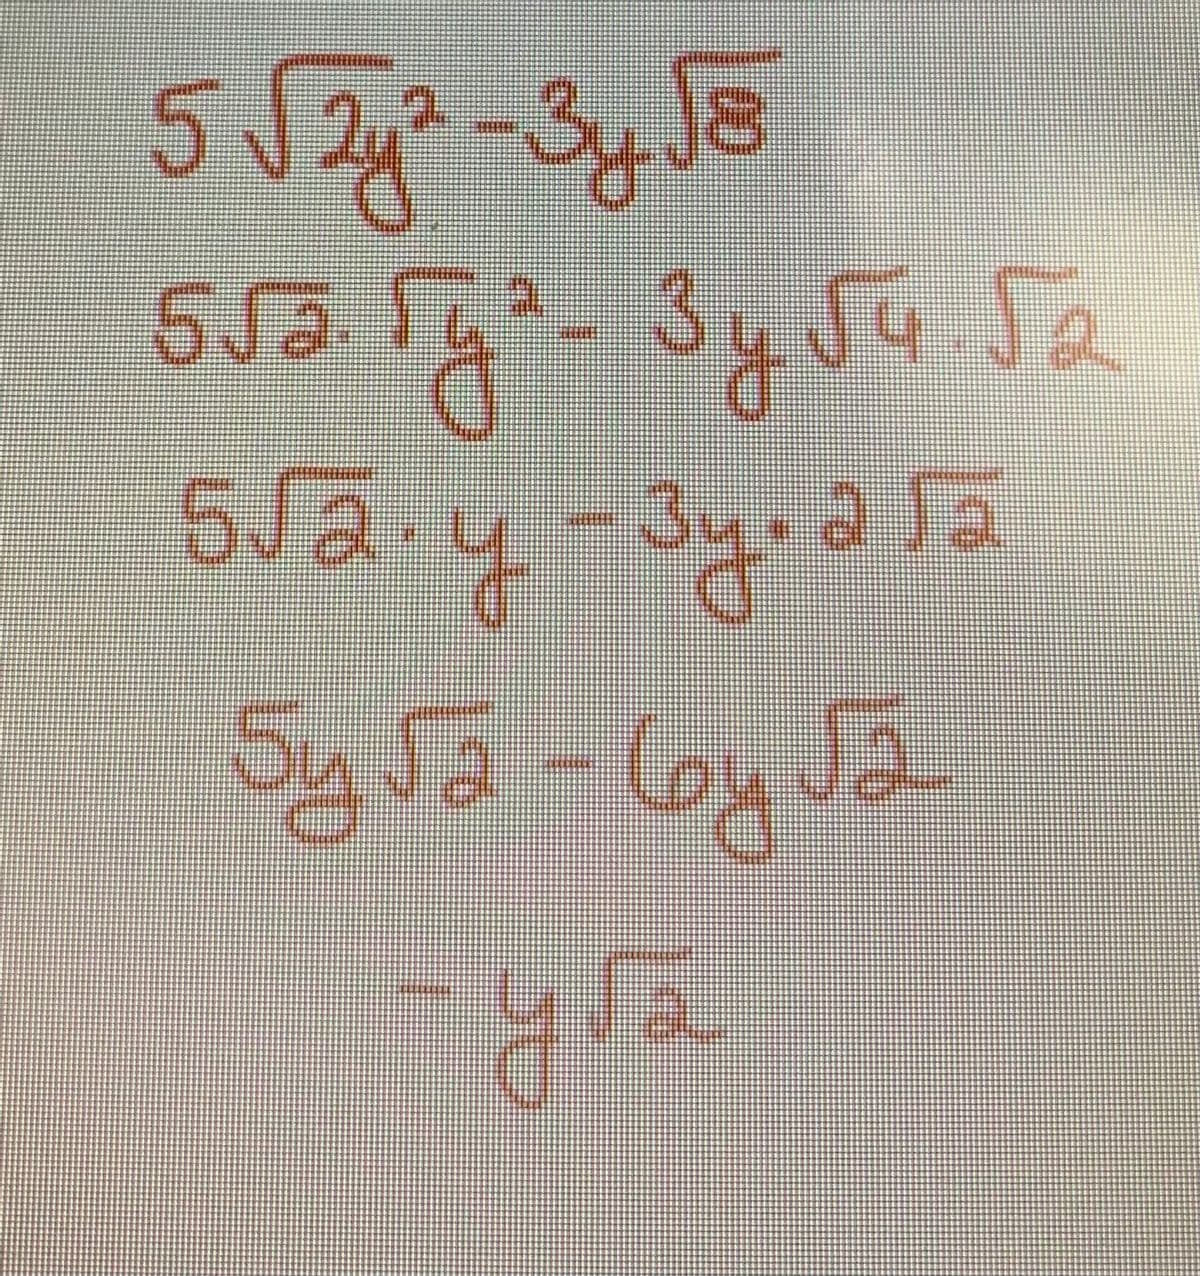 5√2y² - 3y√8
5√2 · √y² - 3y√4 · √2
5√2 · y - 3y · 2√2
5y√2 - 6y√2
- y√2